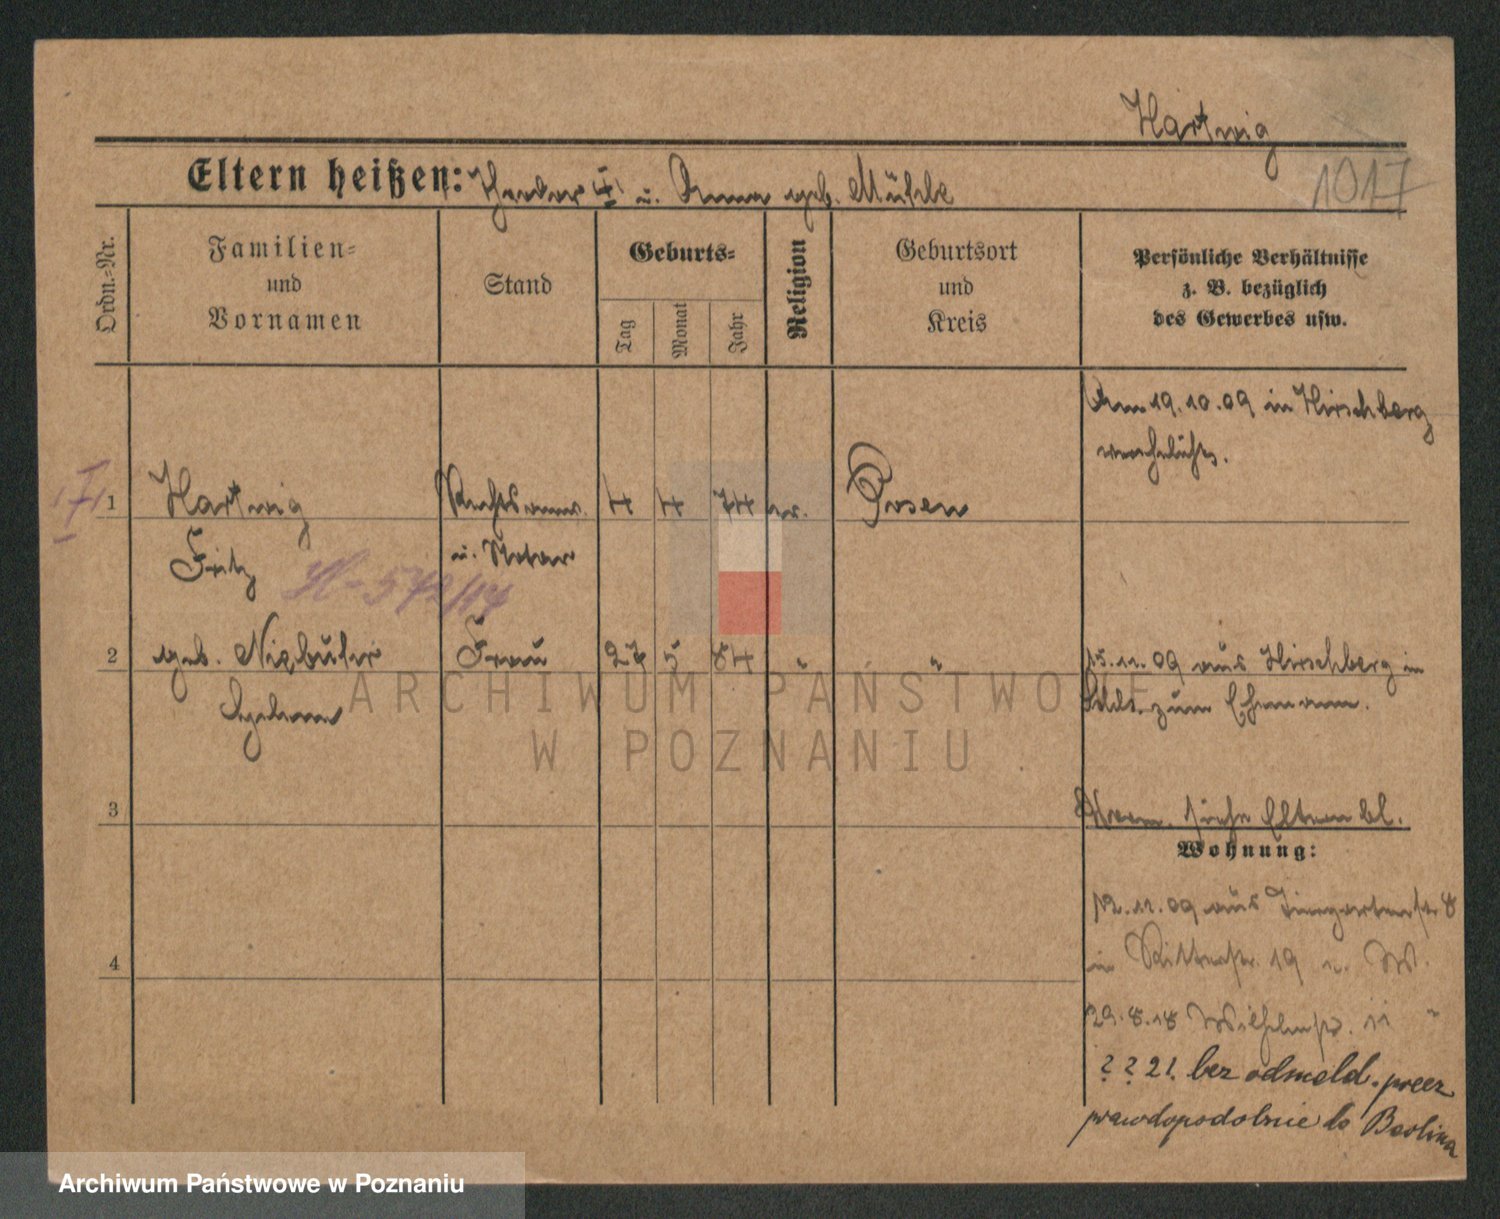 Hartwig
1017
Eltern heißen: Theodor u. Anna geb. Mühle
Ordn.-Nr.
Familien-
und
Vornamen
Stand
Geburts-
Tag
Monat
Jahr
Religion
Geburtsort
und
Kreis
Persönliche Verhältnisse
z. B. bezüglich
des Gewerbes usw.
Am 19.10.09 in Hirschberg
verehelicht.
1 Hartwig Rechtsanw. 4 4 74 ev. Posen
Fritz u. Notar
H-572/14
2 geb. Frau 5 84 " " 15.11.09 aus Hirschberg in
zum Ehemann.
3
siehe Elternbl.
Wohnung:
12.11.09 aus Tiergartenstr. 8
4
in Ritterstr. 19 n. W.
29.8.18 Wilhelmstr. 11 "
? ? 21. bez odmeld. precz
prawdopodobnie do Berlina
ARCHIWUM PAŃSTWOWE
W POZNANIU
Archiwum Państwowe w Poznaniu